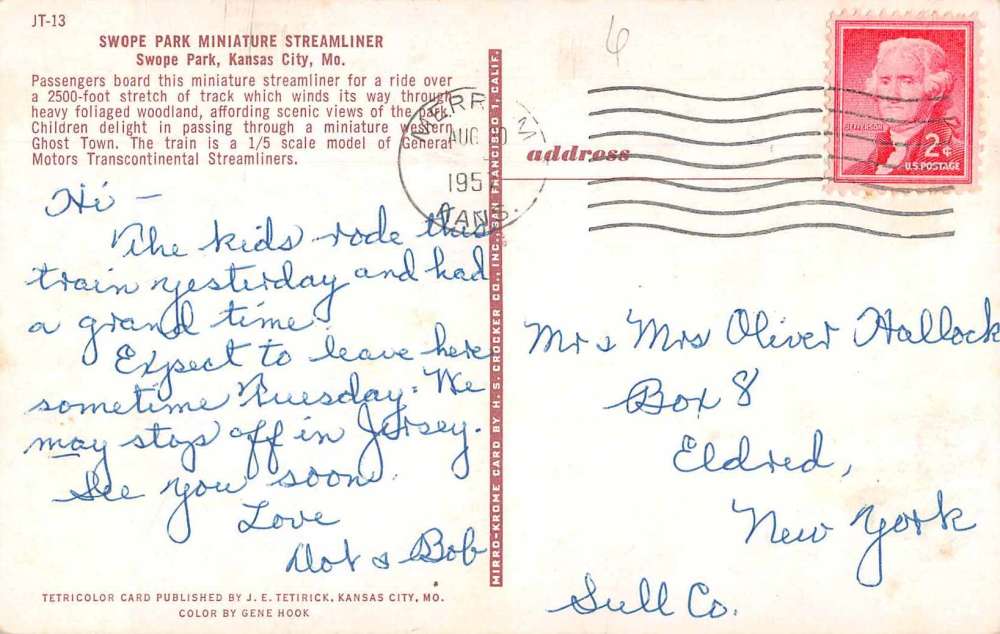 JT-13
SWOPE PARK MINIATURE STREAMLINER
Swope Park, Kansas City, Mo.
Passengers board this miniature streamliner for a ride over
a 2500-foot stretch of track which winds its way through
heavy foliaged woodland, affording scenic views of the park.
Children delight in passing through a miniature western
Ghost Town. The train is a 1/5 scale model of General
Motors Transcontinental Streamliners.
Hi -
The kids rode this
train yesterday and had
a grand time.
Expect to leave here
sometime Tuesday. We
may stop off in Jersey.
See you soon.
Love
Dot & Bob
TETRICOLOR CARD PUBLISHED BY J. E. TETIRICK, KANSAS CITY, MO.
COLOR BY GENE HOOK
MIRRO-KROME CARD BY H. S. CROCKER CO., INC., SAN FRANCISCO 1, CALIF.
6
AUG
195
KANS.
address
JEFFERSON
2¢
U.S. POSTAGE
Mr & Mrs Oliver Hallock
Box 8
Eldred,
New York
Sull Co.